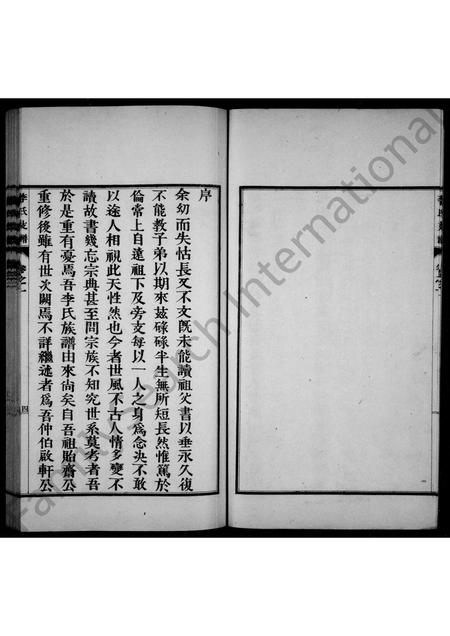 序
余幼而失怙長又不文旣未能讀祖父書以垂永久復
不能教子弟以期來玆碌碌半生無所短長然惟篤於
倫常上自遠祖下及旁支每以一人之身爲念決不敢
以途人相視此天性然也今者世風不古人情多變不
讀故書幾忘宗典甚至問宗族不知究世系莫考者吾
於是重有憂焉吾李氏族譜由來尙矣自吾祖貽齋公
重修後雖有世次闕焉不詳繼述者爲吾仲伯啟軒公
李氏族譜
卷之一
四
FamilySearch International